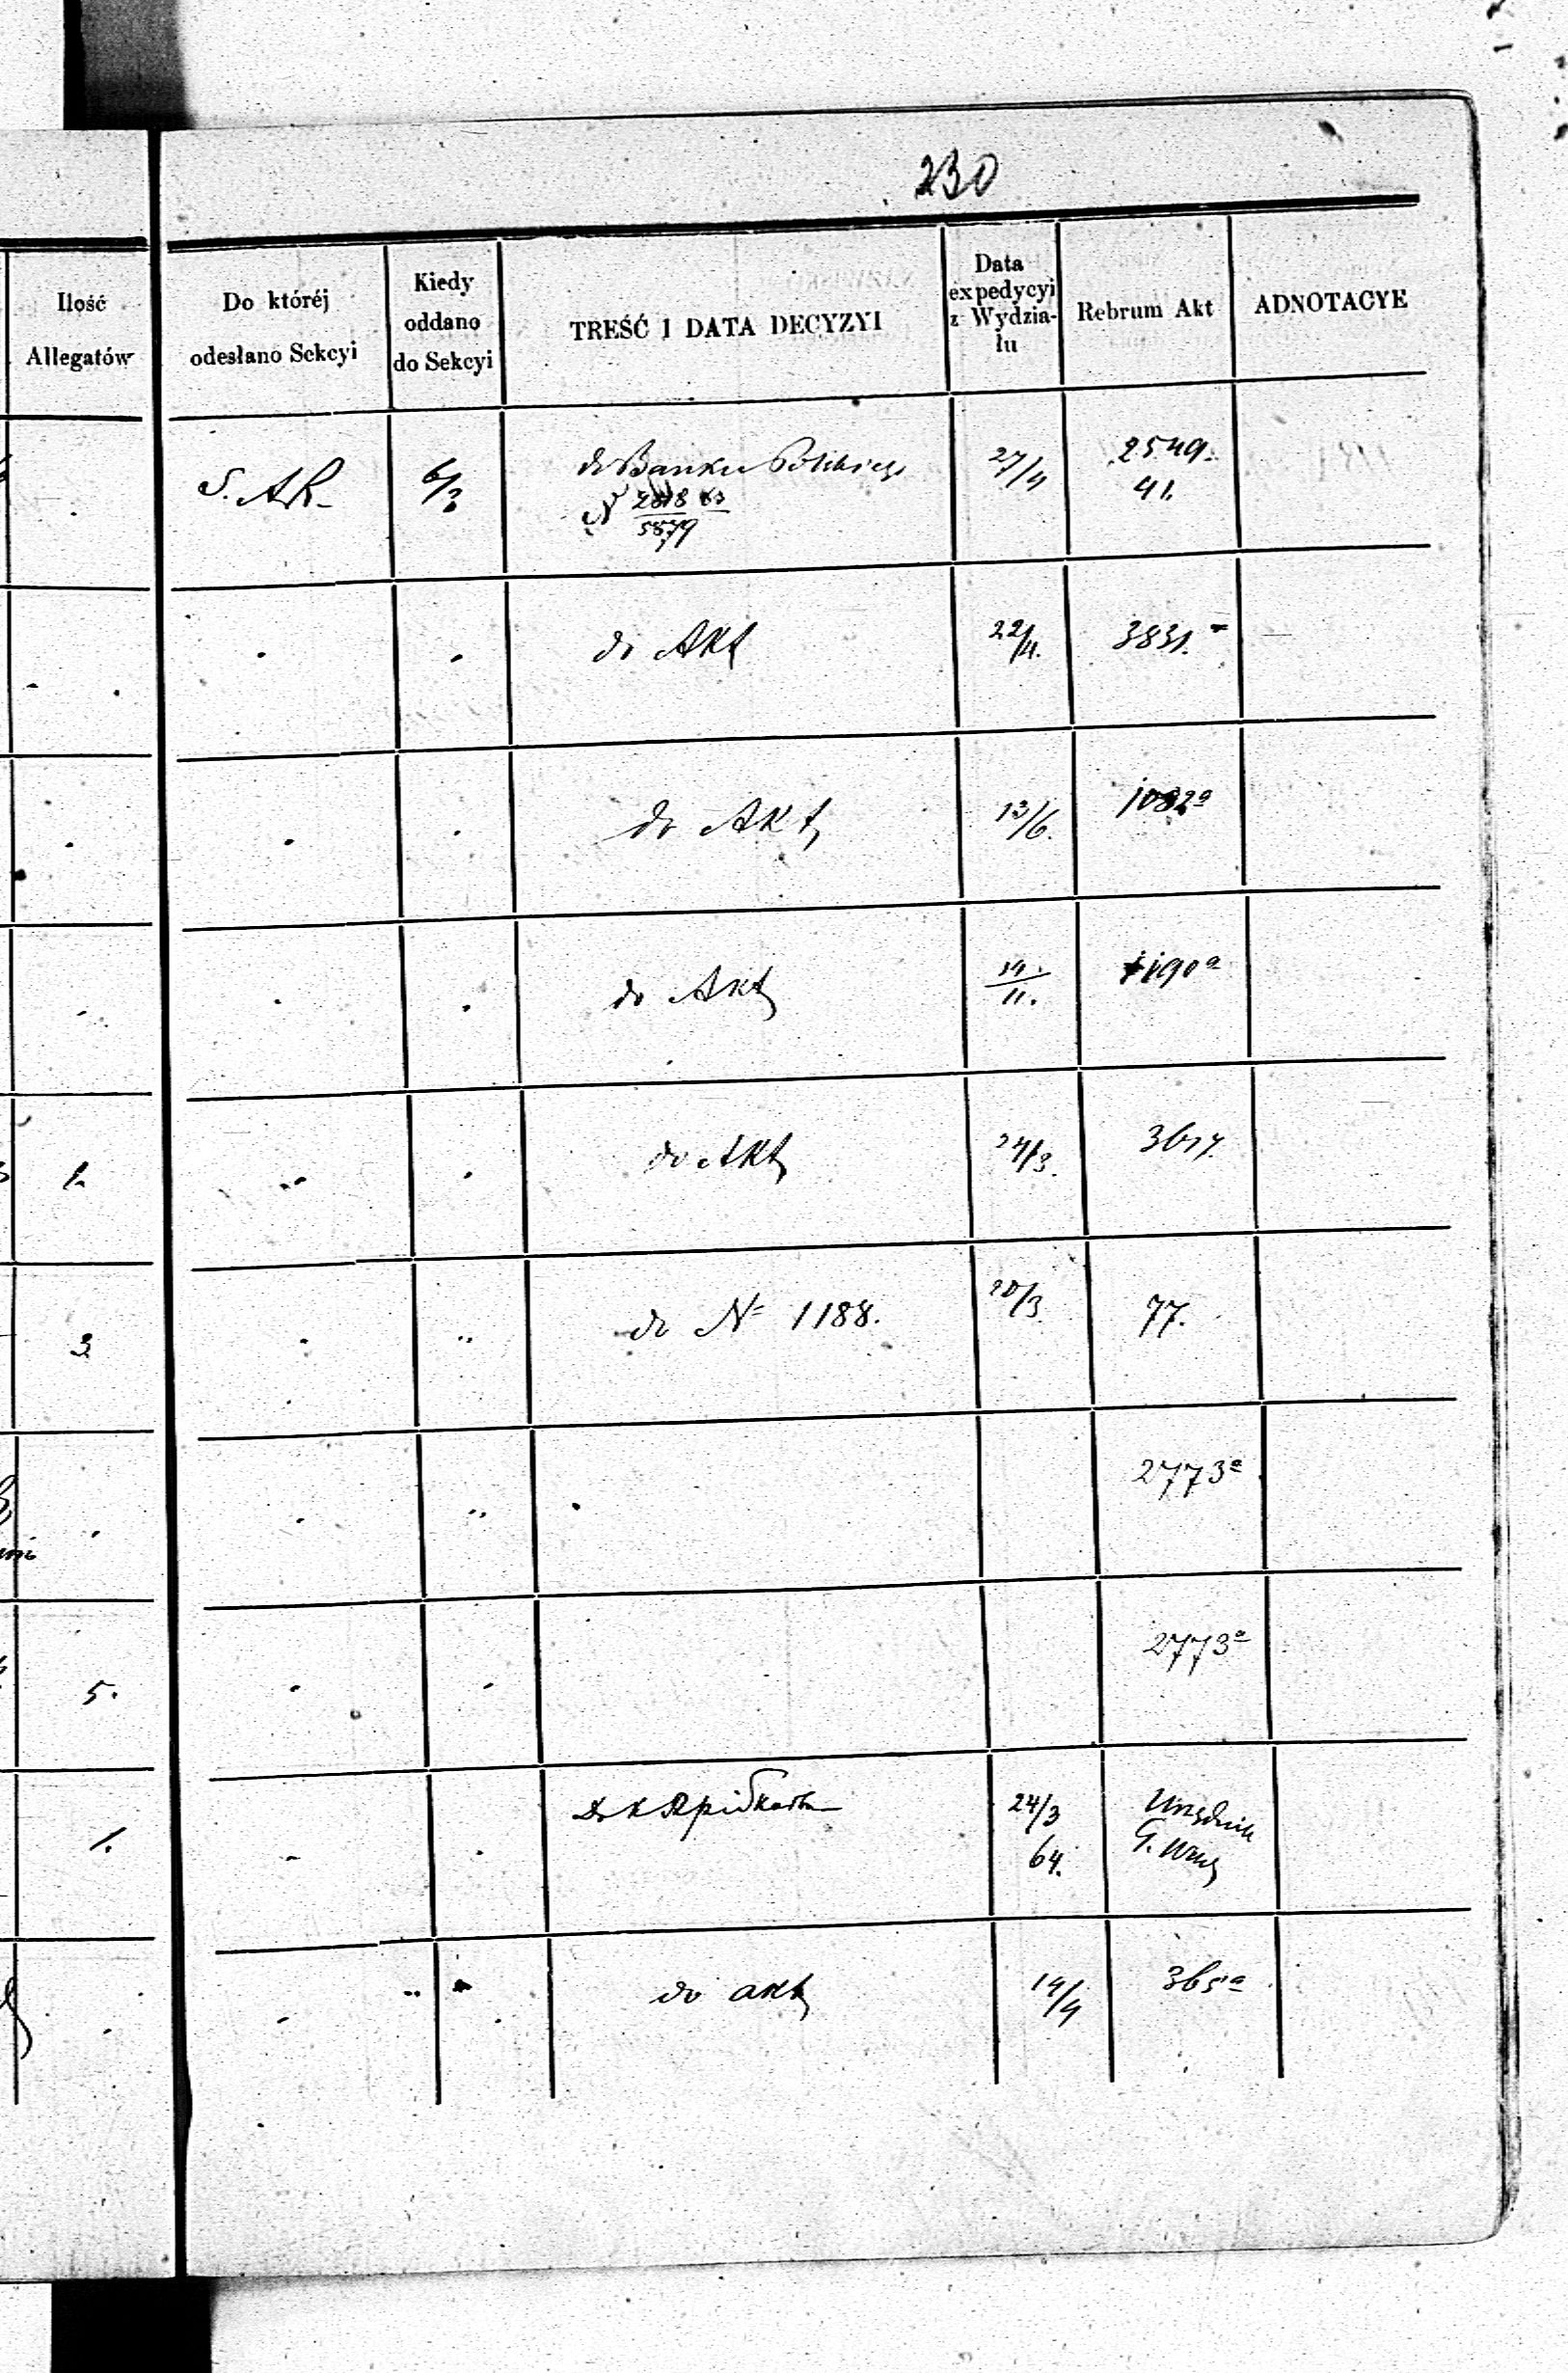 230
Ilość Allegatów
Do któréj odesłano Sekcyi
Kiedy oddano do Sekcyi
TREŚĆ I DATA DECYZYI
Data expedycyi z Wydzia-łu
Rebrum Akt
ADNOTACYE
S. AR.
6/3
do Banku Polskiego
27/4
2549.
41.
N 2818 63
5879
do Akt
22/4.
3831.
do Akt
13/6.
1082a
do Akt
19.
11.
1190a
1.
do Akt
24/3.
3
do N= 1188.
20/3.
77.
2773a
5.
2773a
1.
24/3
64.
G.
do akt
14/4
365a